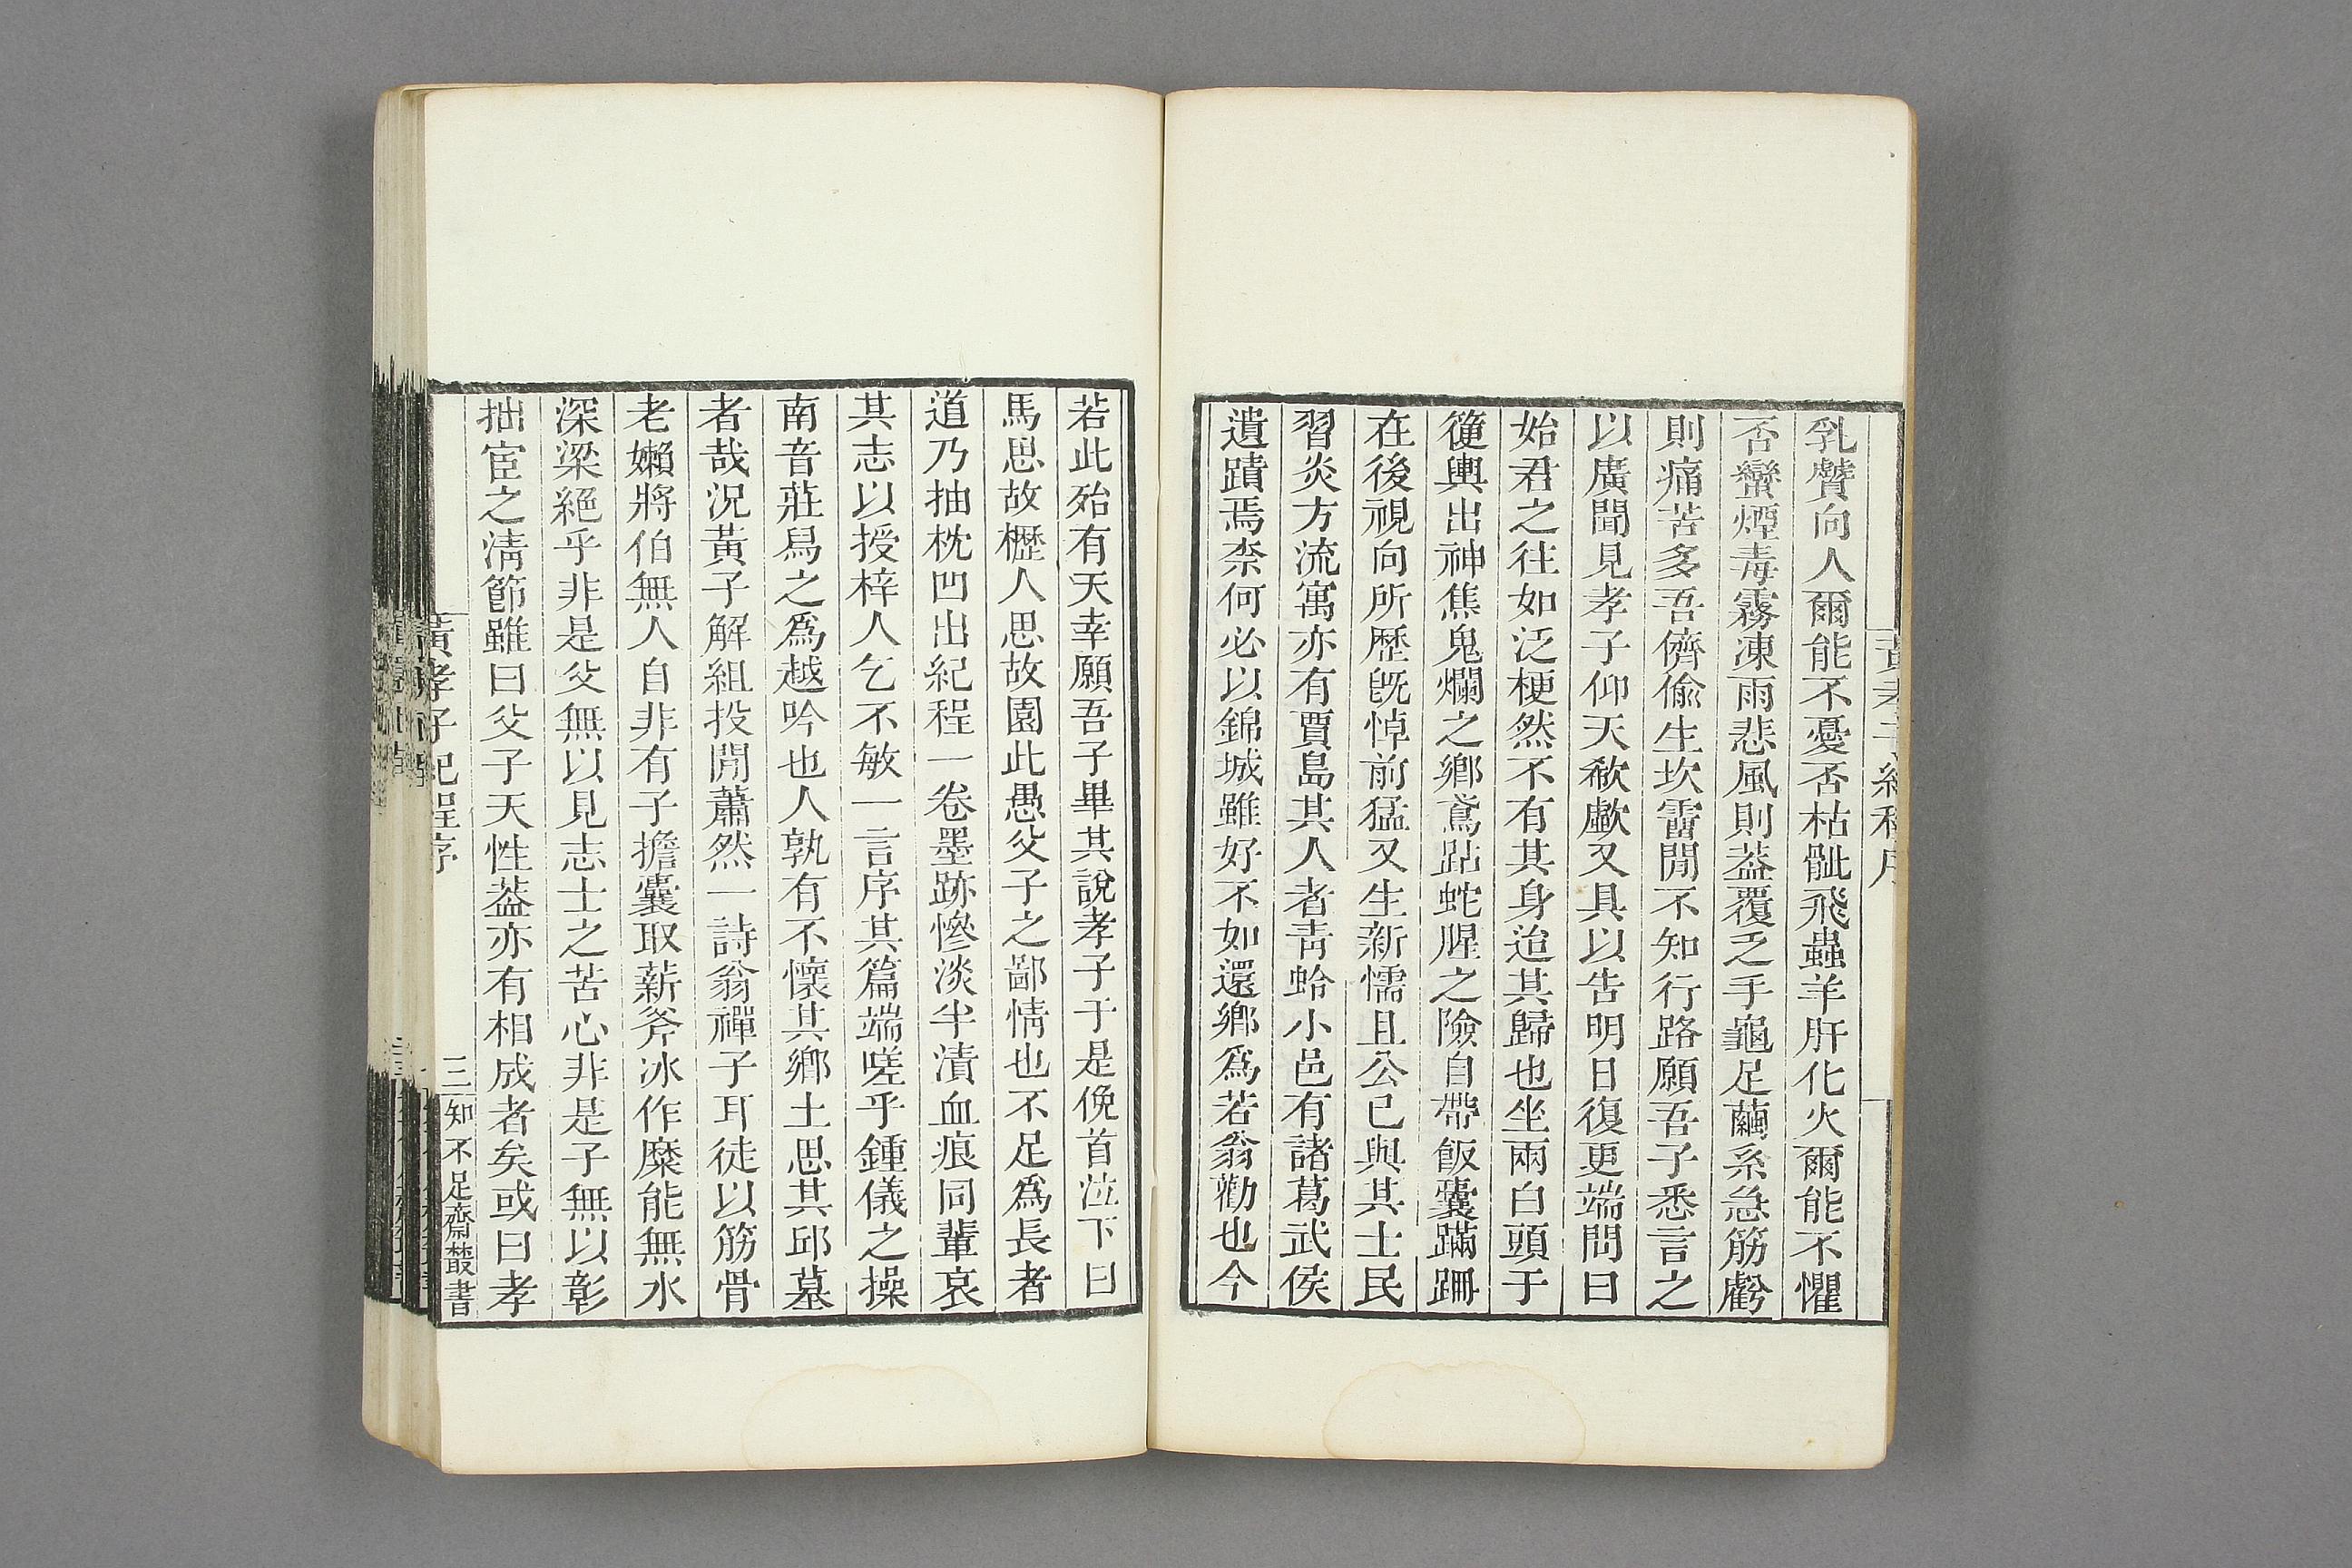 乳贙向人爾能不憂否枯骴飛蟲羊肝化火爾能不懼
否蠻煙毒霧凍雨悲風則葢覆乏手龜足繭系急筋虧
則痛苦多吾儕偸生坎䨓閒不知行路願吾子悉言之
以廣聞見孝子仰天欷歔又具以告明日復更端問曰
始君之往如泛梗然不有其身迨其歸也坐兩白頭于
箯輿出神焦鬼爛之鄕鳶跕蛇腥之險自帶飯囊蹣跚
在後視向所歷旣悼前猛又生新懦且公已與其士民
習炎方流寓亦有賈島其人者靑蛉小邑有諸葛武侯
遺蹟焉柰何必以錦城雖好不如還鄕爲若翁勸也今
若此殆有天幸願吾子畢其說孝子于是俛首泣下曰
馬思故櫪人思故園此愚父子之鄙情也不足爲長者
道乃抽枕凹出紀程一卷墨跡慘淡半漬血痕同輩哀
其志以授梓人乞不敏一言序其篇端嗟乎鍾儀之操
南音莊舄之爲越吟也人孰有不懷其鄕土思其邱墓
者哉況黃子解組投閒蕭然一詩翁禪子耳徒以筋骨
老嬾將伯無人自非有子擔囊取薪斧冰作糜能無水
深梁絕乎非是父無以見志士之苦心非是子無以彰
拙宦之淸節雖曰父子天性葢亦有相成者矣或曰孝
黃孝子紀程序
三
知不足齋叢書